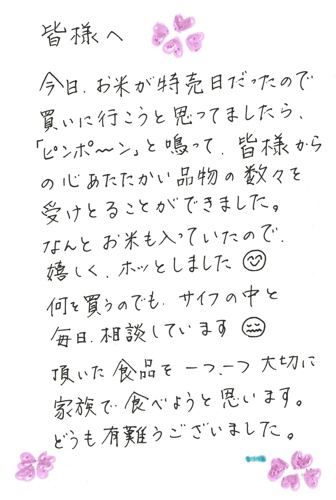 皆様へ
今日、お米が特売日だったので
買いに行こうと思ってましたら、
「ピンポ〜ン」と鳴って、皆様から
の心あたたかい品物の数々を
受けとることができました。
なんとお米も入っていたので、
嬉しく、ホッとしました
何を買うのでも、サイフの中と
毎日、相談しています
頂いた食品を一つ、一つ大切に
家族で食べようと思います。
どうも有難うございました。